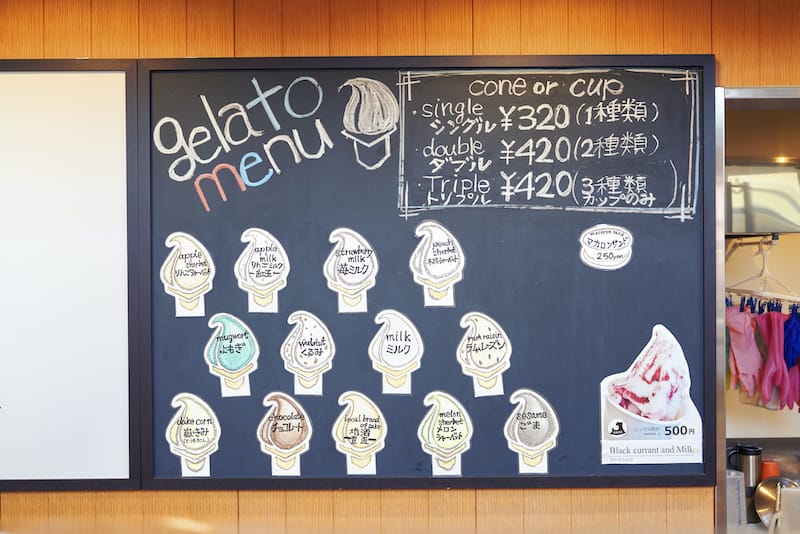 gelato
menu
cone or cup
・single
シングル ¥320 (1種類)
・double
ダブル ¥420 (2種類)
・Triple
トリプル ¥420 (3種類
カップのみ)
macaron sand
マカロンサンド
250yen
apple
sherbet
りんごシャーベット
apple
milk
りんごミルク
~紅玉~
strawberry
milk
苺ミルク
peach
sherbet
mugwort
よもぎ
walnut
くるみ
milk
ミルク
rum raisin
ラムレーズン
dake corn
嶽きみ
(とうもろこし)
chocolate
チョコレート
local brand
of sake
地酒
melon
sherbet
メロン
シャーベット
sesame
ごま
500円
Black currant and Milk